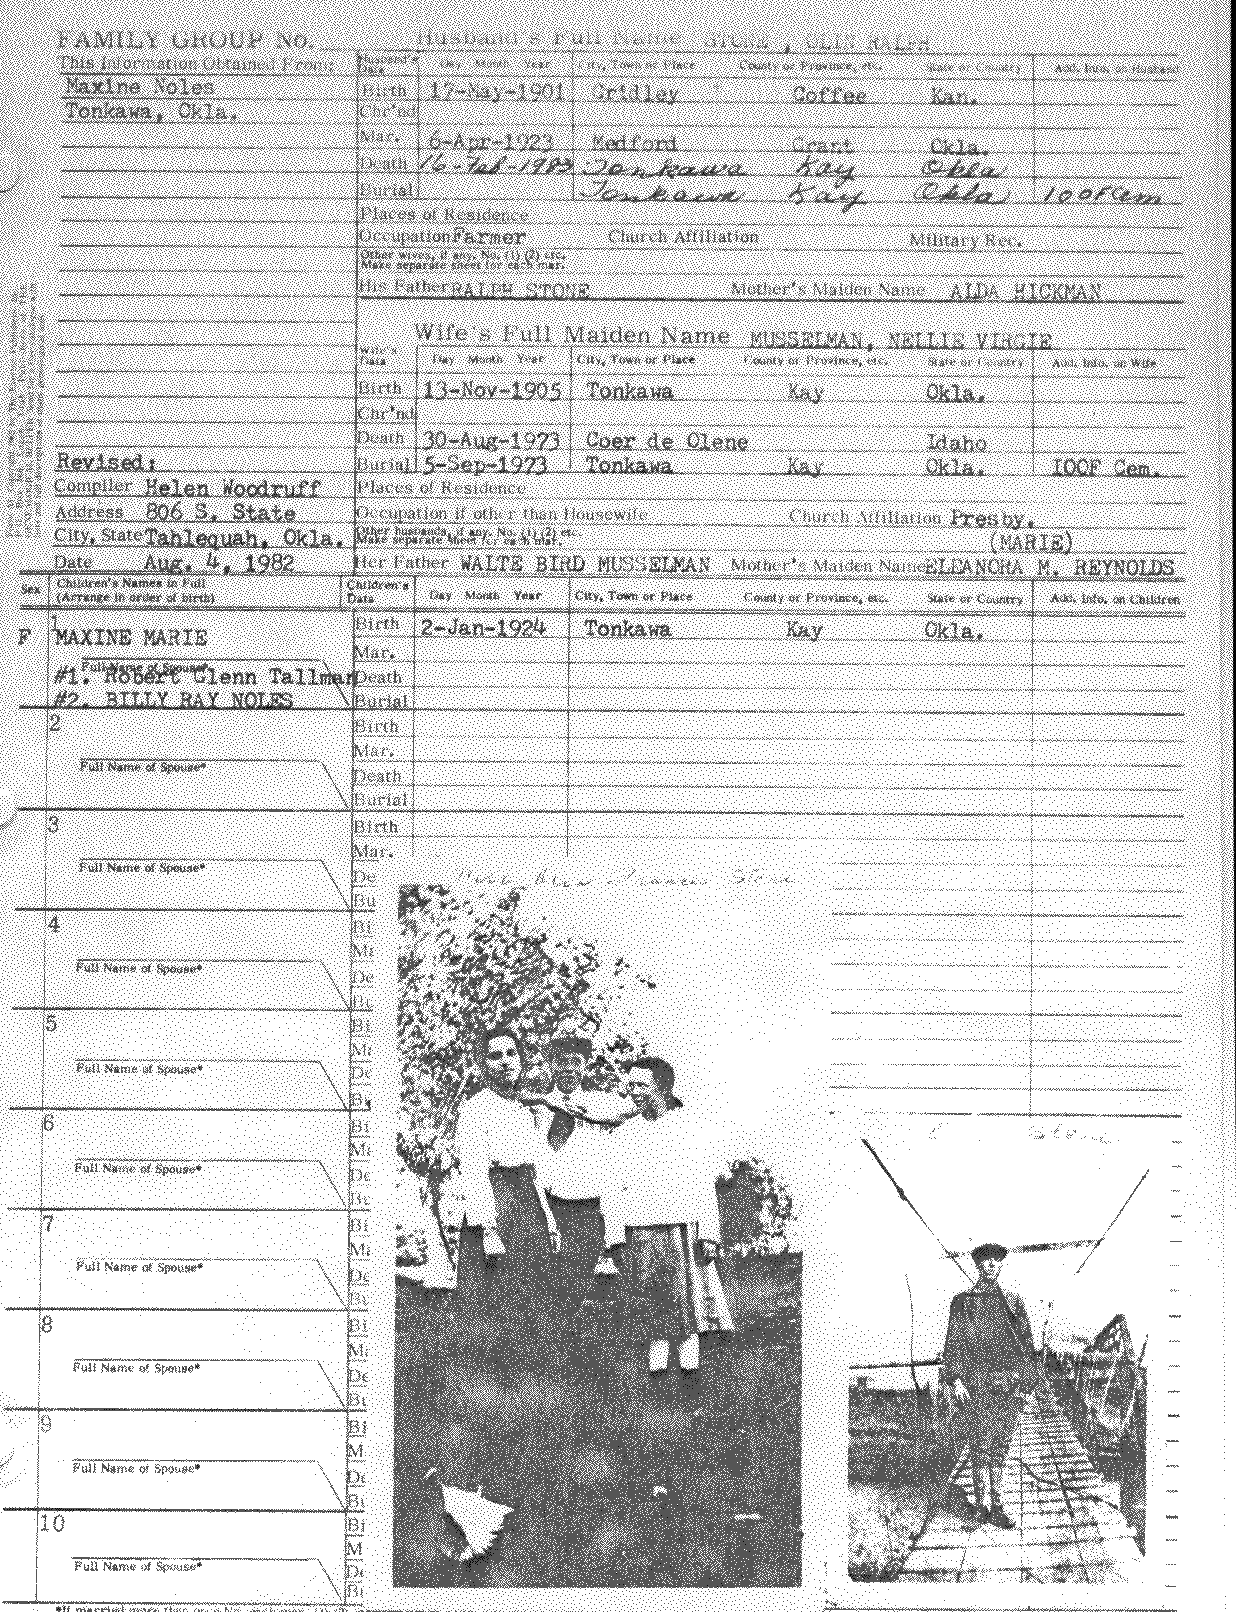 FAMILY GROUP No. Husband's Full Name STONE, RALPH
This Information Obtained From: Husband's Data Day Month Year City, Town or Place County or Province, etc. State or Country Add. Info. on Husband
Maxine Noles Birth 17-May-1901 Gridley Coffee Kan.
Tonkawa, Okla. Chr'nd
Mar. 6-Apr-1923 Medford Grant Okla.
Death 16-Feb-1983 Tonkawa Kay Okla
Burial Tonkawa Kay Okla IOOF Cem
Places of Residence
Occupation Farmer Church Affiliation Military Rec.
Other wives, if any, No. (1) (2) etc.
Make separate sheet for each mar.
His Father RALPH STONE Mother's Maiden Name ALDA HICKMAN
Wife's Full Maiden Name MUSSELMAN, NELLIE VIRGIE
Wife's Data Day Month Year City, Town or Place County or Province, etc. State or Country Add. Info. on Wife
Birth 13-Nov-1905 Tonkawa Kay Okla.
Chr'nd
Death 30-Aug-1973 Coer de Olene Idaho
Revised: Burial 5-Sep-1973 Tonkawa Kay Okla. IOOF Cem.
Compiler Helen Woodruff Places of Residence
Address 806 S. State Occupation if other than Housewife Church Affiliation Presby.
City, State Tahlequah, Okla. Other husbands, if any, No. (1) (2) etc. Make separate sheet for each mar. (MARIE)
Date Aug. 4, 1982 Her Father WALTE BIRD MUSSELMAN Mother's Maiden Name ELEANORA M. REYNOLDS
Sex Children's Names in Full (Arrange in order of birth) Children's Data Day Month Year City, Town or Place County or Province, etc. State or Country Add. Info. on Children
1 Birth 2-Jan-1924 Tonkawa Kay Okla.
F MAXINE MARIE
Mar.
Full Name of Spouse*
#1. Robert Glenn Tallman Death
#2. BILLY RAY NOLES Burial
2 Birth
Mar.
Full Name of Spouse* Death
Burial
3 Birth
Mar.
Full Name of Spouse* De
Bu
Stone
4 Bi
Ma
Full Name of Spouse* De
Bu
5 Bi
Ma
Full Name of Spouse* De
Bu
6 Bi
Ma
Stone
Full Name of Spouse* De
Bu
7 Bi
Ma
Full Name of Spouse* De
Bi
8 Bi
Ma
Full Name of Spouse* De
Bu
9 Bi
M
Full Name of Spouse* De
Bu
10 Bi
M
Full Name of Spouse* De
Bi
*If married more than once No.